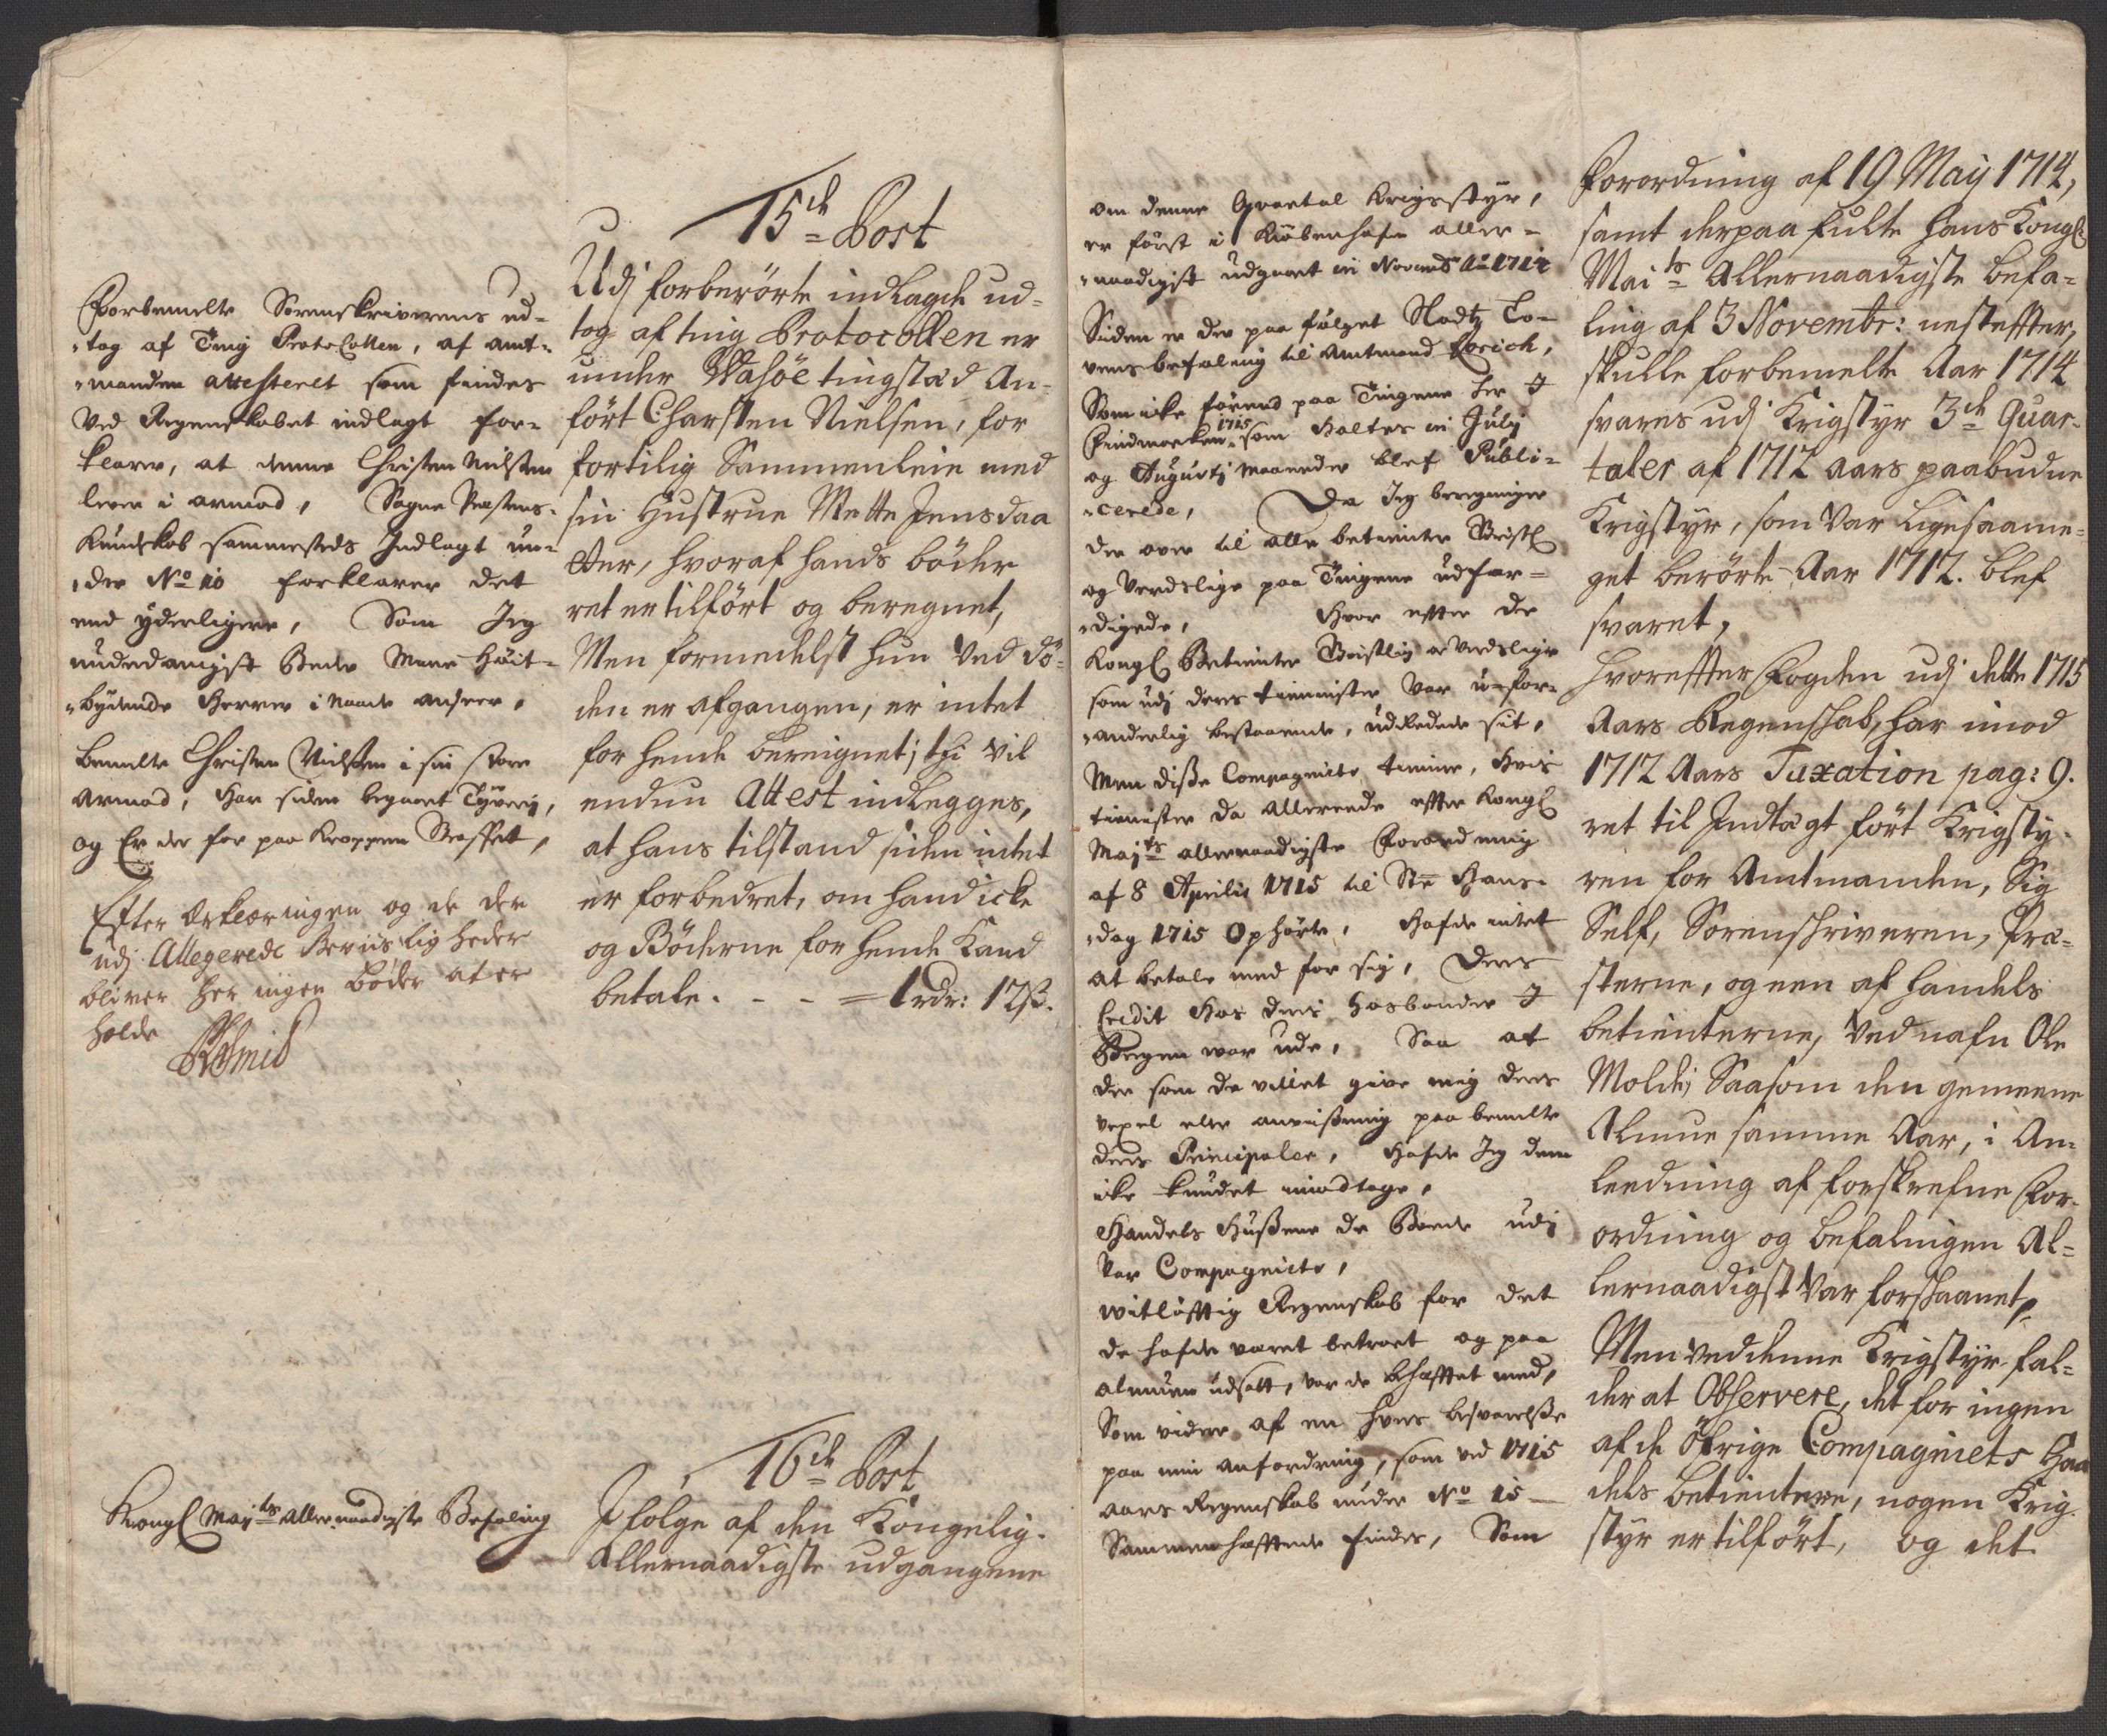 Forbemelte Sorenskriverens ud-
tog af Ting ProtoCollen, af amt-
manden attesteret som findes
ved Regenskabet indlagt for-
klarer, at denne Christen Nielsen
lever i armod, Sogne Præstens
Kundskab sammesteds Indlagt un-
der No 10 forklarer det
end yderligere, Som Jeg
underdanigst Beder Mine Høit-
bydende Herrer i Naade anseer,
bemelte Christen Nielsen i sin store
armod, har siden begaaet Tyveri,
og Er der for paa Kroppen Straffet,
Efter Erklæringen og de der
udj Allegerede Beviisligheder
bliver her ingen Bøder at er
holde
15de Post
Udj forberørte indlagde ud-
tog af ting Protocollen er
under Wasöe tingstæd An-
ført Charsten Nielsen, for
fortilig Sammenleie med
sin Hustrue Mette Jensdaa
tter, hvoraf hands bøder
ret er tilført og beregnet,
Men formedelst hun ved dö-
den er afgangen, er intet
for hende bereignet; thi vil
endnu Attest indlegges,
at hans tilstand siden intet
er forbedret, om hand icke
og Böderne for hende Kand
betale. - - - = 1 rdr: 12 ß.
Kongl Maytz allernaadigste Befaling
16de Post
I folge af den Kongelig.
Allernaadigste udgangene
om denne Qvartal Krigsstyr,
er först i Kiöbenhafn aller-
naadigst udgaaet in Novemb Ao 1714
Siden er der paa fulget Stadtz Co-
vens befaling til Amtmand Lorich,
Som icke förend paa Tingene her I
Findmarken 1715 som holtes in July
og Augusti Maaneder blef Publi-
cerede, Da Jeg beregninger
der over til alle betiente Geistl
og Verdslige paa Tingene udfær-
digede, Hvor efter de
Kongl Betiente Geistlig og Verdslige
som udj deres tienister var u-for-
anderlig bestaaende, udredede sit,
Men disse Compagniets tiener, Hvis
tienister da allerede efter Kongl
Mayts allernaadigste Forordning
af 8 Aprilis 1715 til Ste Hans-
dag 1715 Ophörte, Hafde intet
at betale med for sig, Deres
Credit Hos deris Hosbonder I
Bergen war ude, Saa at
der som de villet give mig deres
vexel eller anvissning paa bemelte
deres Principaler, Hafde Jeg dem
icke kundet imodtage,
Handels Hussene de Boede udj
Var Compagniets,
witlöfftig Regenskab for det
de hafde været betroet og paa
almuen udsatt, var de behæfftet med,
Som videre af en hver besvarelsse
paa min anfordring, som ved 1715
aars Regenskab under No 15
Sammenhæfftede findes, Som
Forordning af 19 Maij 1714,
samt derpaa fulte Hans Kongl
Maits Allernaadigste befa-
ling af 3 Novembr: nesteffter,
skulle forbemelte Aar 1714
svares udj Krigstyr 3de Quar-
taler af 1712 aars paabudne
Krigstyr, som Var ligesaame-
get berörte Aar 1712. blef
svaret,
Hvoreffter Fogden udj dette 1715
Aars Regenskab, har imod
1712 Aars Taxation pag: 9.
ret til Indtægt fört Krigsty-
ren for Amtmanden, Sig
Self, Sorenskriveren, Præ-
sterne, og een af handels
betienterne, Ved nafn Ole
Molde; Saasom den gemeene
Almue samme Aar, i An-
leedning af forskrefne For-
ordning og befalingen Al-
lernaadigst Var forskaanet,
Men Ved denne Krigstyr fal-
der at Observere, det for ingen
af de Öfrige Compagniets Han
dels betientere, nogen Krig
styr er tilfört, og det